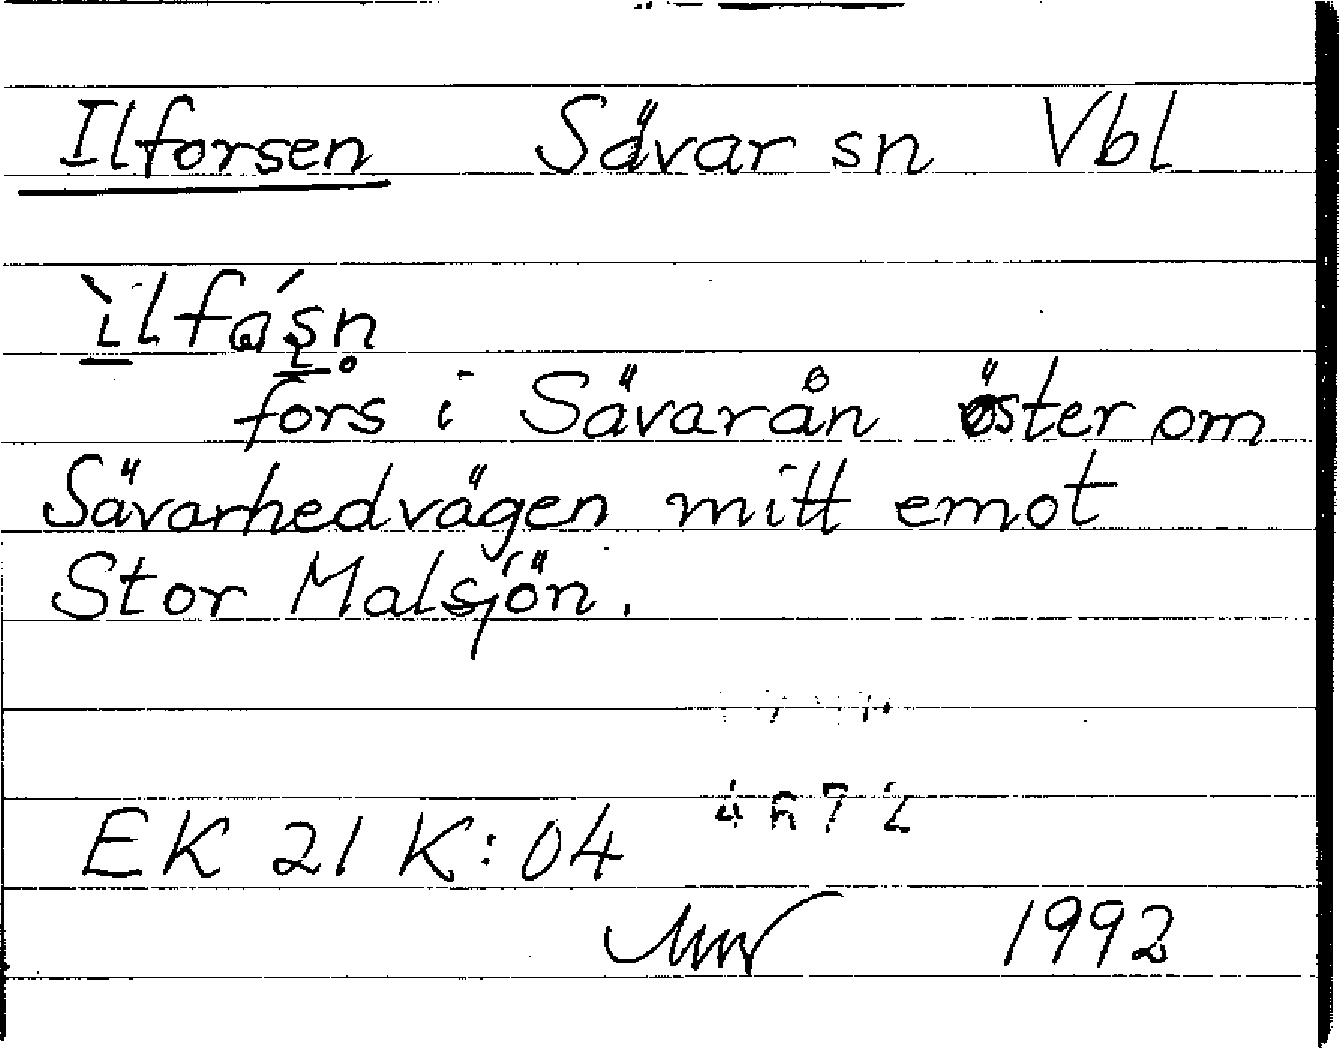 Ilforsen Sävar sn Vbl
ìlfásn̥
fors i Sävarån öster om
Sävarhedvägen mitt emot
Stor Malsjön.
EK 21 K:04
1992